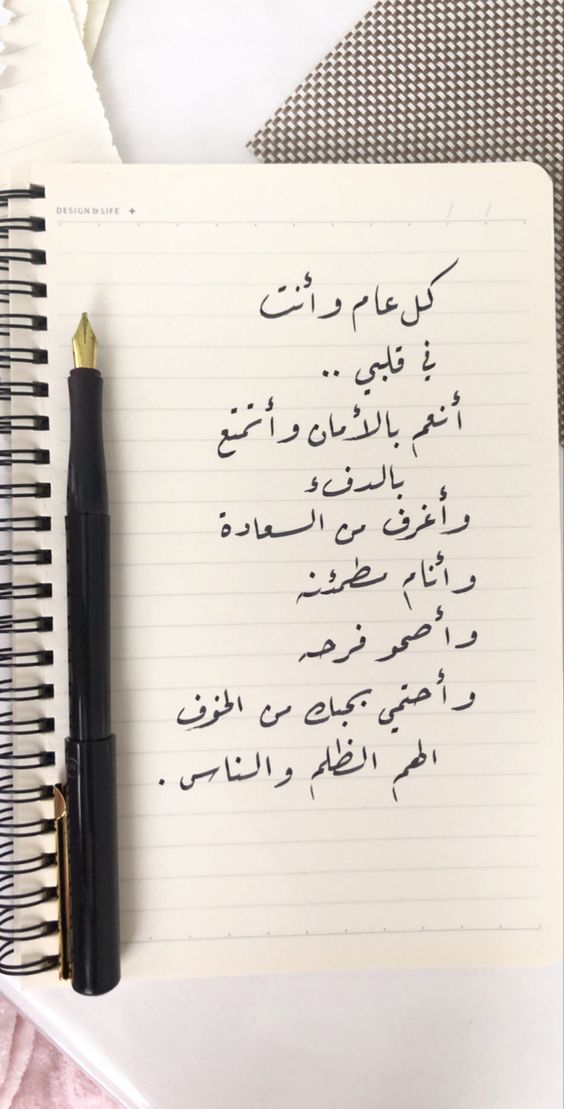 DESIGN & LIFE +
كل عام و أنت
في قلبي ..
أنعم بالأمان و أتمتع
بالدفء
و أغرف من السعادة
و أنام مطمئنه
و أصحو فرحه
و أحتمي بحبك من الخوف
الهم الظلم و الناس .